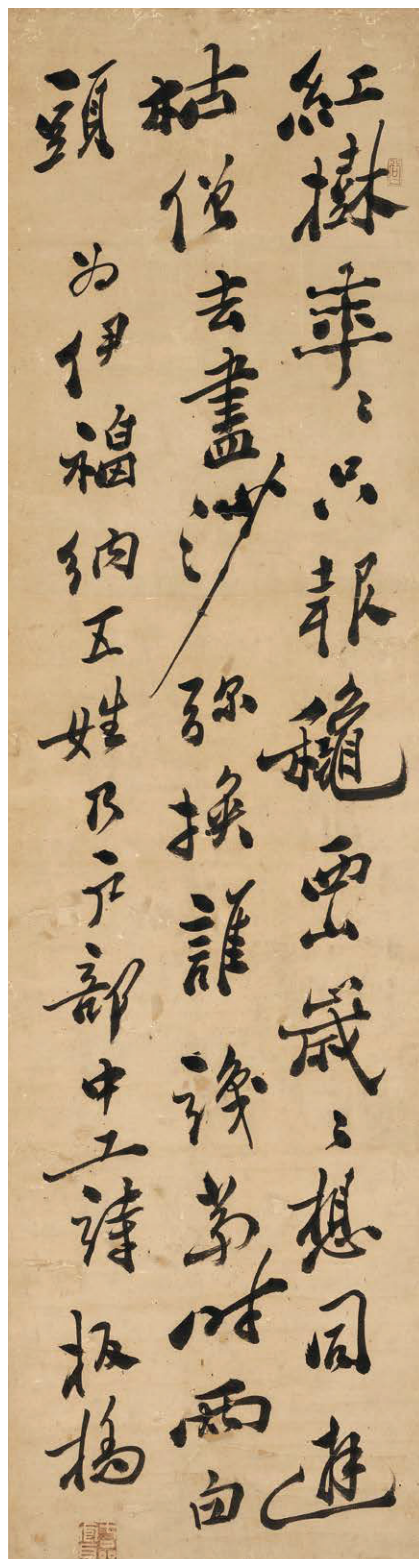 紅樹年々只報穐西山歲々想同遊
枯僧去盡沙彌換誰識當時兩白
頭 為伊福納五姓乃戶部中工詩 板橋